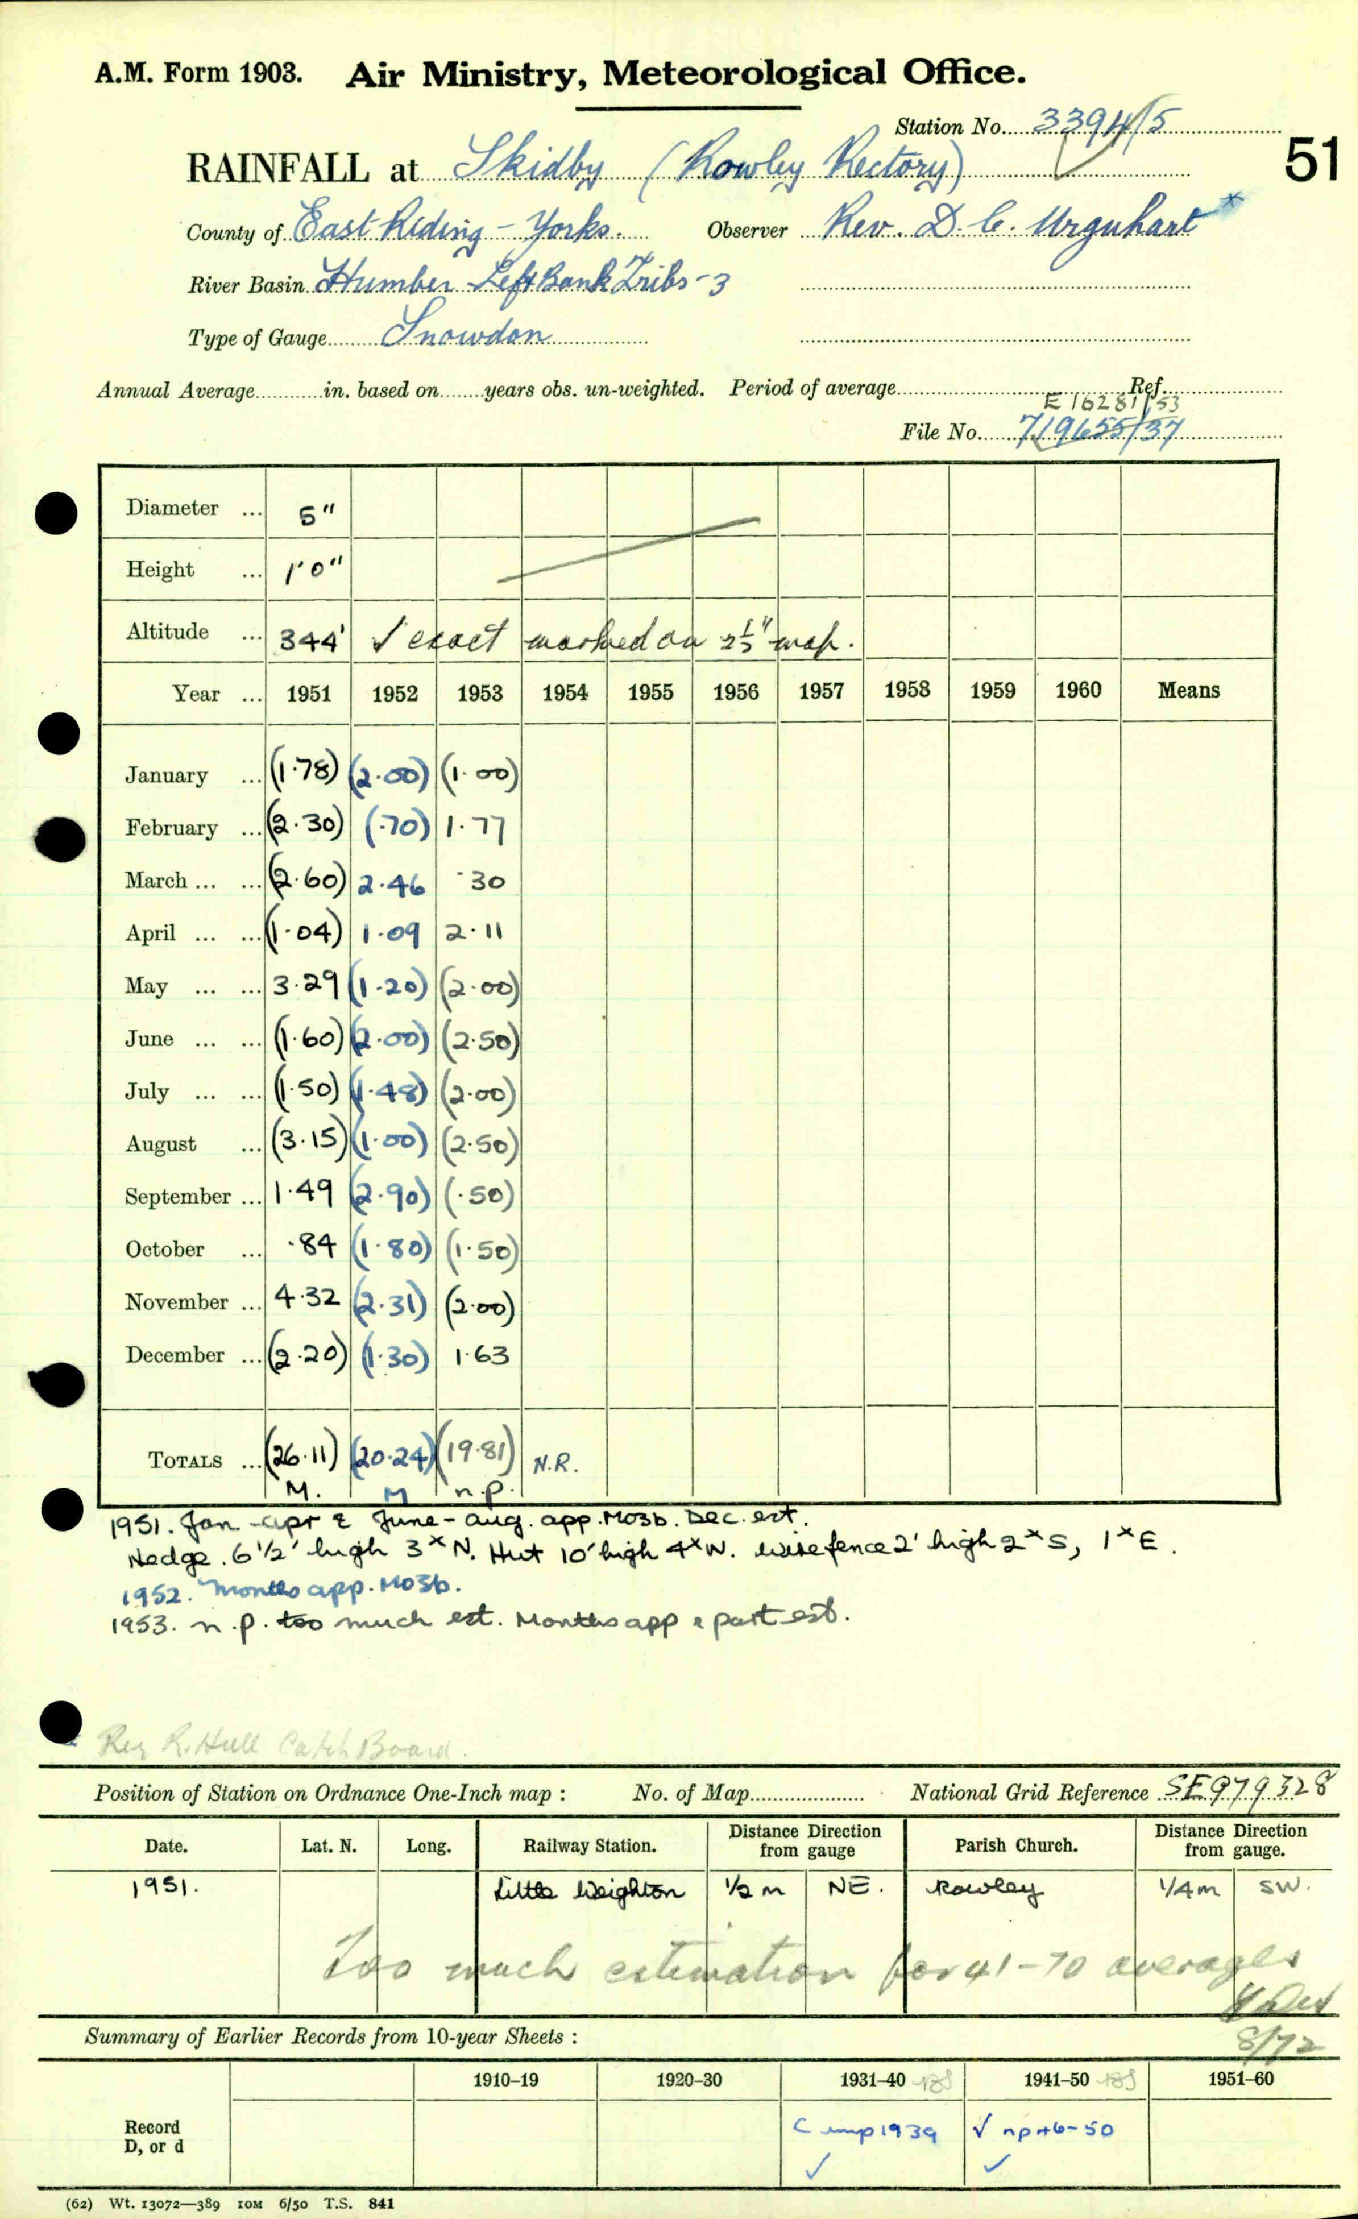 A.M. Form 1903. Air Ministry, Meteorological Office.
Station No. 3394/5
51
RAINFALL at Skidby (Rowley Rectory)
County of East Riding - Yorks. Observer Rev. D. C. Urquhart *
River Basin Humber Left Bank Tribs -3
Type of Gauge Snowdon
Annual Average in. based on years obs. un-weighted. Period of average Ref.
E 16281/53
File No. 719655/37
Diameter ... 5"
Height ... 1'0"
Altitude ... 344' √ exact marked on 2½" map.
Year ... 1951 1952 1953 1954 1955 1956 1957 1958 1959 1960 Means
January ... (1.78) (2.00) (1.00)
February ... (2.30) (.70) 1.77
March ... ... (2.60) 2.46 .30
April ... ... (1.04) 1.09 2.11
May ... ... 3.29 (1.20) (2.00)
June ... ... (1.60) (2.00) (2.50)
July ... ... (1.50) (1.48) (2.00)
August ... (3.15) (1.00) (2.50)
September ... 1.49 (2.90) (.50)
October ... .84 (1.80) (1.50)
November ... 4.32 (2.31) (2.00)
December ... (2.20) (1.30) 1.63
TOTALS ... (26.11) (20.24) (19.81) N.R.
M. M n.p.
1951. Jan - apr & June - aug. app. MO3b. Dec. est.
Hedge. 6½' high 3ˣ N. Hut 10' high 4ˣ W. wire fence 2' high 2ˣ S, 1ˣ E.
1952. Months app. MO3b.
1953. n.p. too much est. Months app & part est.
Rey R. Hull Catch Board.
Position of Station on Ordnance One-Inch map : No. of Map National Grid Reference SE 979328
Date. Lat. N. Long. Railway Station. Distance from Direction gauge Parish Church. Distance from Direction gauge.
1951. Little Weighton ½ m NE. Rowley ¼ m SW.
Too much estimation for 41-70 averages
8/72
Summary of Earlier Records from 10-year Sheets :
1910–19 1920–30 1931–40 1941–50 1951–60
Record
D, or d
C imp 1939 √ np 46-50
✓ ✓
(62) Wt. 13072—389 10M 6/50 T.S. 841